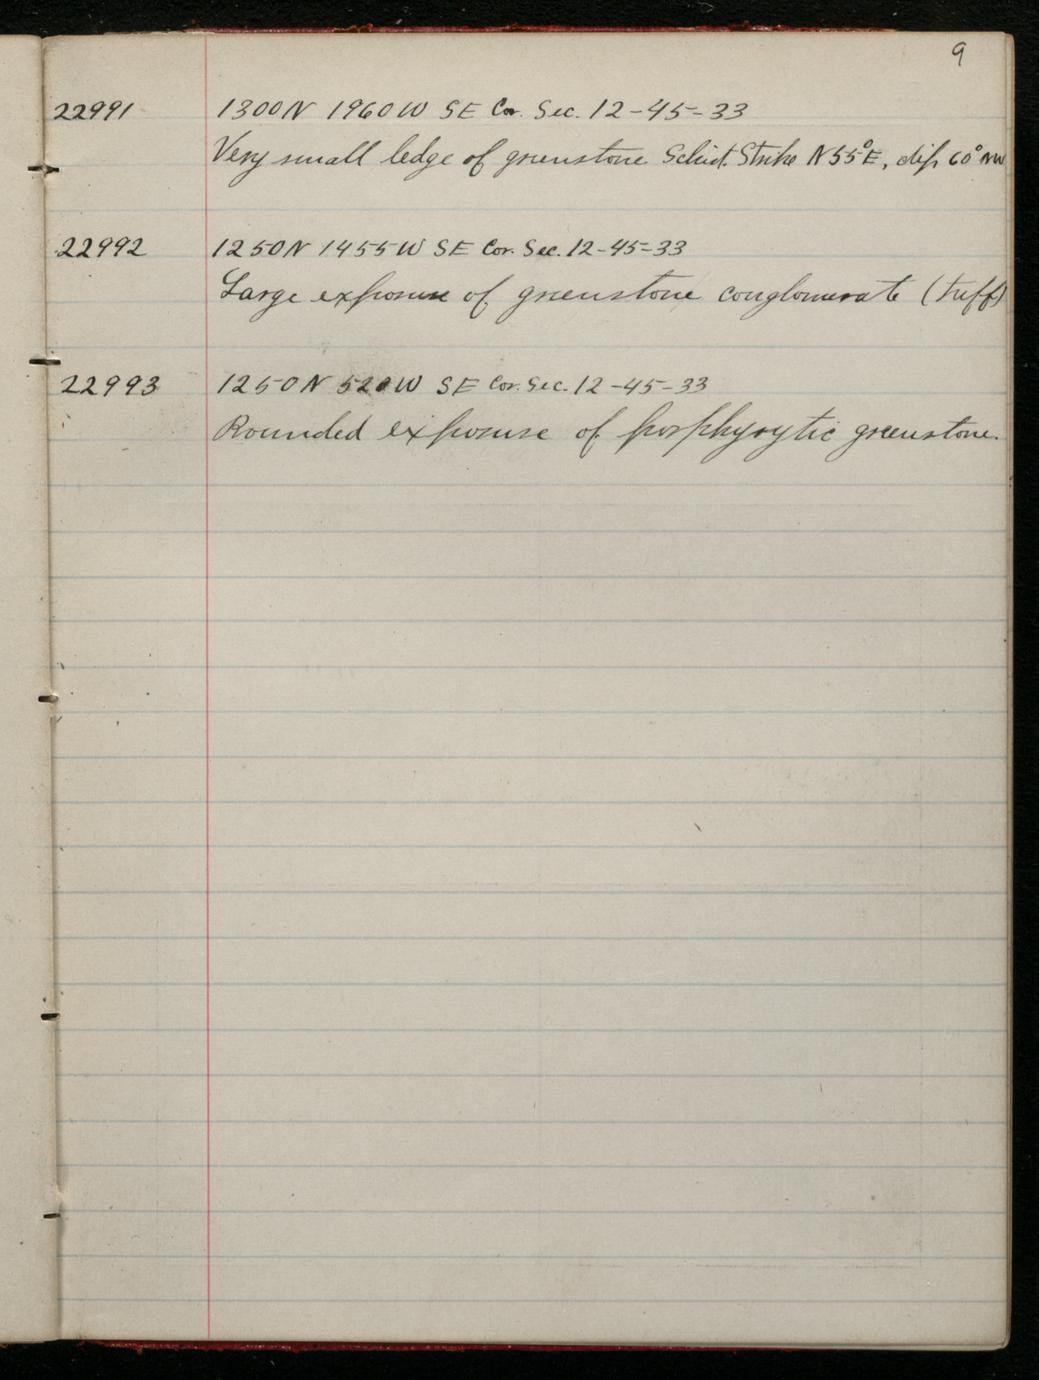 9
22991 1300N 1960W SE Cor. Sec. 12-45-33
Very small ledge of greenstone Schist. Strike N55°E, dip 60° NW
22992 1250N 1455W SE Cor. Sec. 12-45-33
Large exposure of greenstone conglomerate (tuff)
22993 1250N 520W SE Cor. Sec. 12-45-33
Rounded exposure of porphyrytic greenstone.